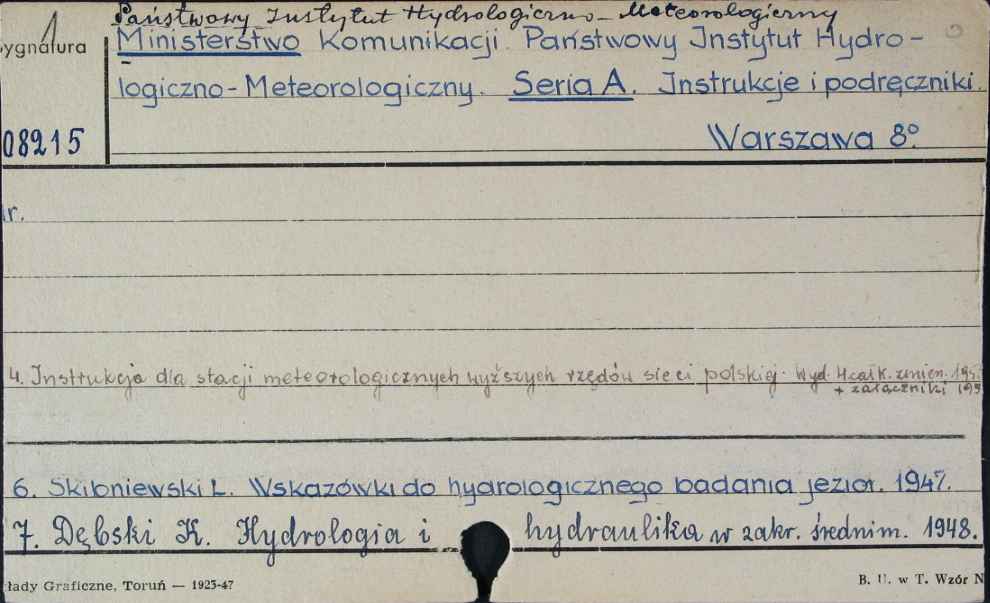 Państwowy Instytut Hydrologiczno-Meteorologiczny
ygnatura
Ministerstwo Komunikacji. Państwowy Instytut Hydro-
logiczno-Meteorologiczny. Seria A. Instrukcje i podręczniki.
08215
Warszawa 8°.
r.
4. Instrukcja dla stacji meteorologicznych wyższych rzędów sieci polskiej. Wyd. 4 całk. zmien. 195
+ załączniki 195
6. Skibniewski L. Wskazówki do hydrologicznego badania jezior. 1947.
7. Dębski K. Hydrologia i hydraulika w zakr. średnim. 1948.
łady Graficzne, Toruń — 1923-47
B. U. w T. Wzór N